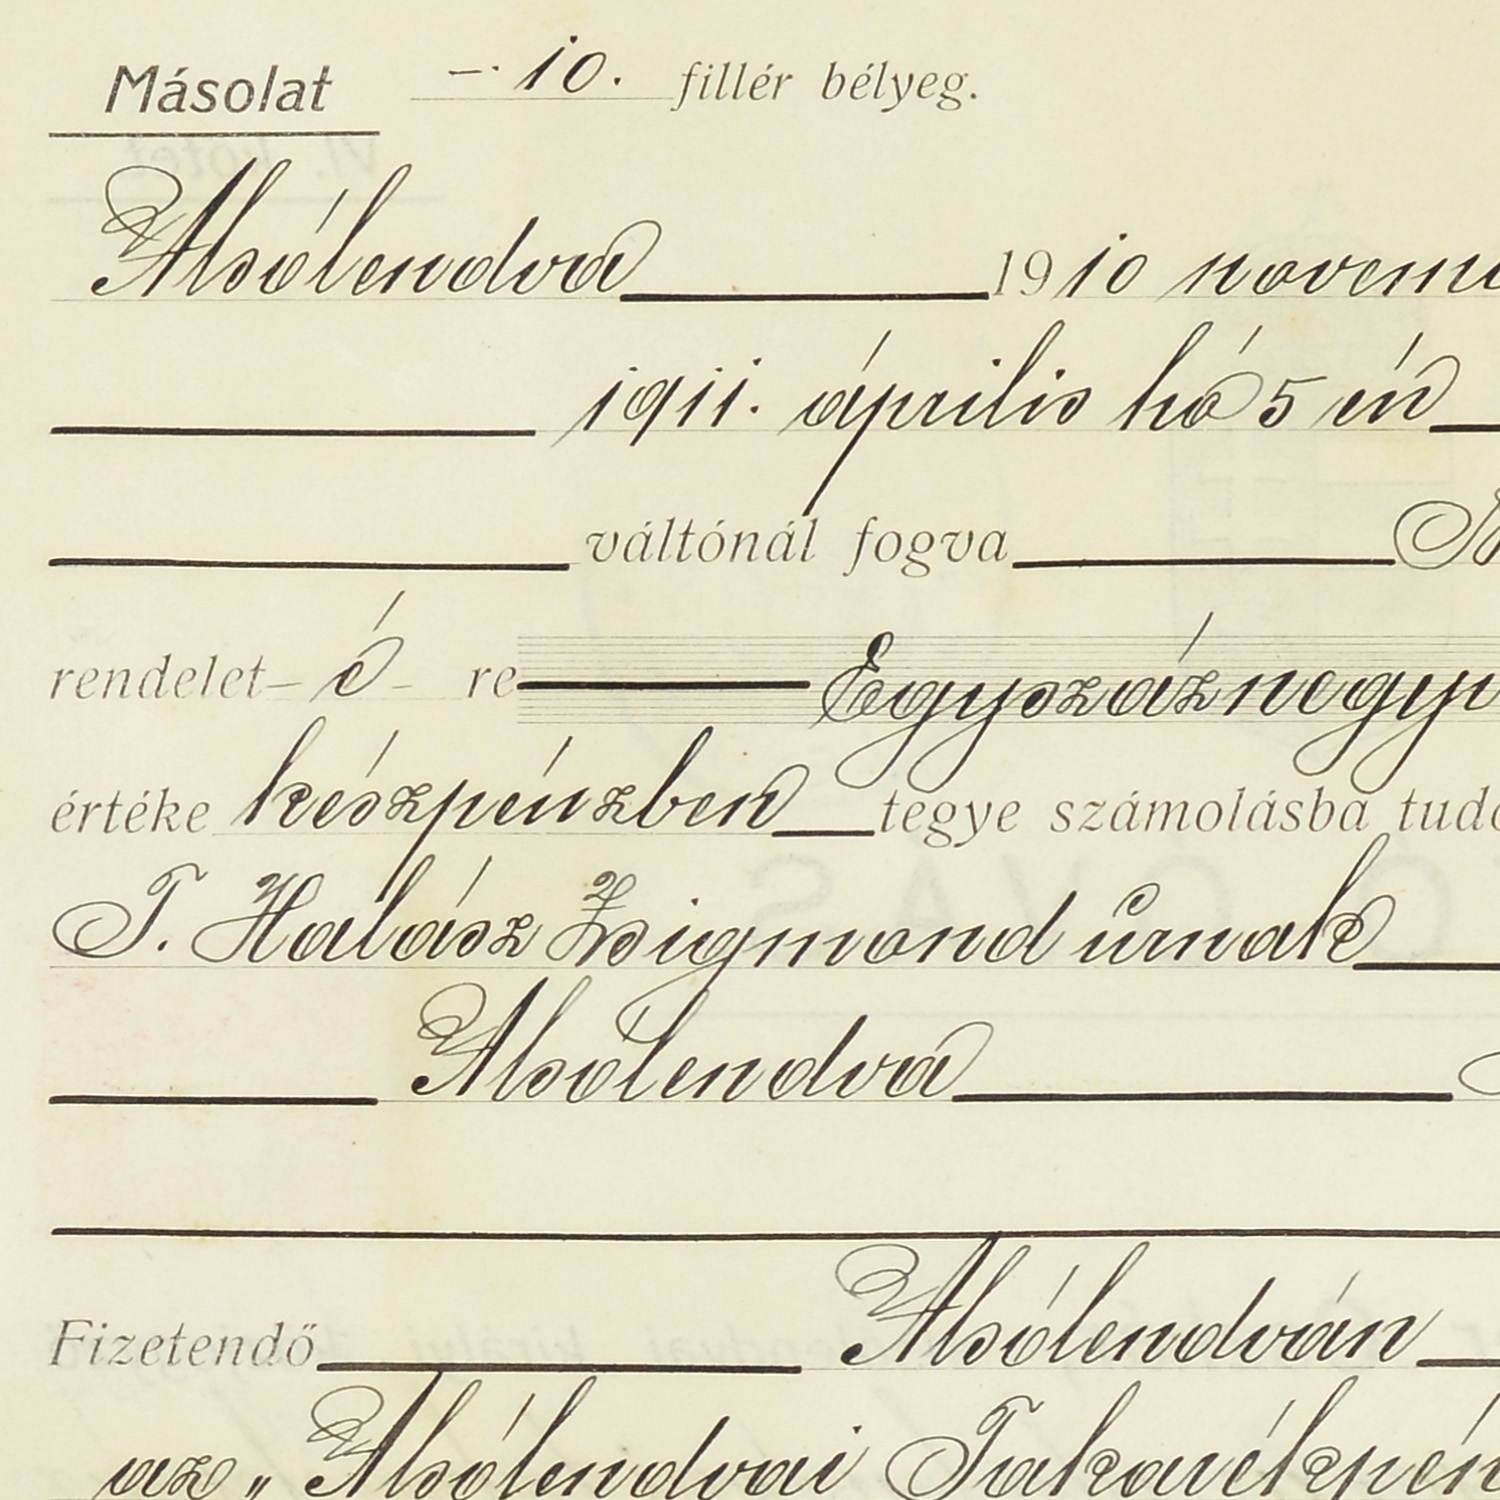 Másolat –. 10. fillér bélyeg.
Alsólendva 1910 novem
1911. április hó 5 én
váltónál fogva
rendelet – é – re Egyszáznegyv
értéke készpénzben tegye számolásba tudó
T. Halász Zsigmond úrnak
Alsólendva
Fizetendő Alsólendván
az „Alsólendvai Takarékpén